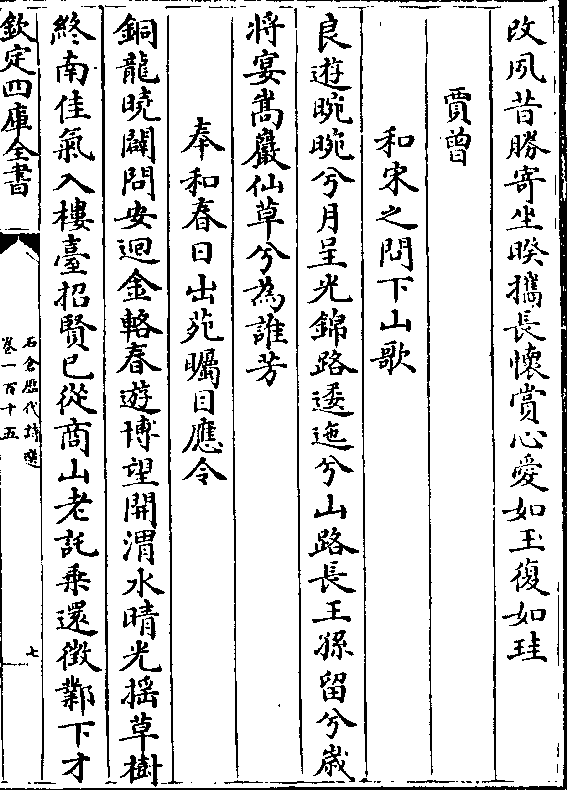 改夙昔勝寄坐暌攜長懷賞心愛如玉復如珪
賈曾
和宋之問下山歌
良遊晼晚兮月呈光錦路逶迤兮山路長王孫留兮嵗
將宴嵩巖仙草兮為誰芳
奉和春日出苑矚目應令
銅龍曉闢問安迴金輅春遊博望開渭水晴光揺草樹
終南佳氣入樓臺招賢已從商山老託乗還徵鄴下才
欽定四庫全書
石倉歴代詩選
卷一百十五
七